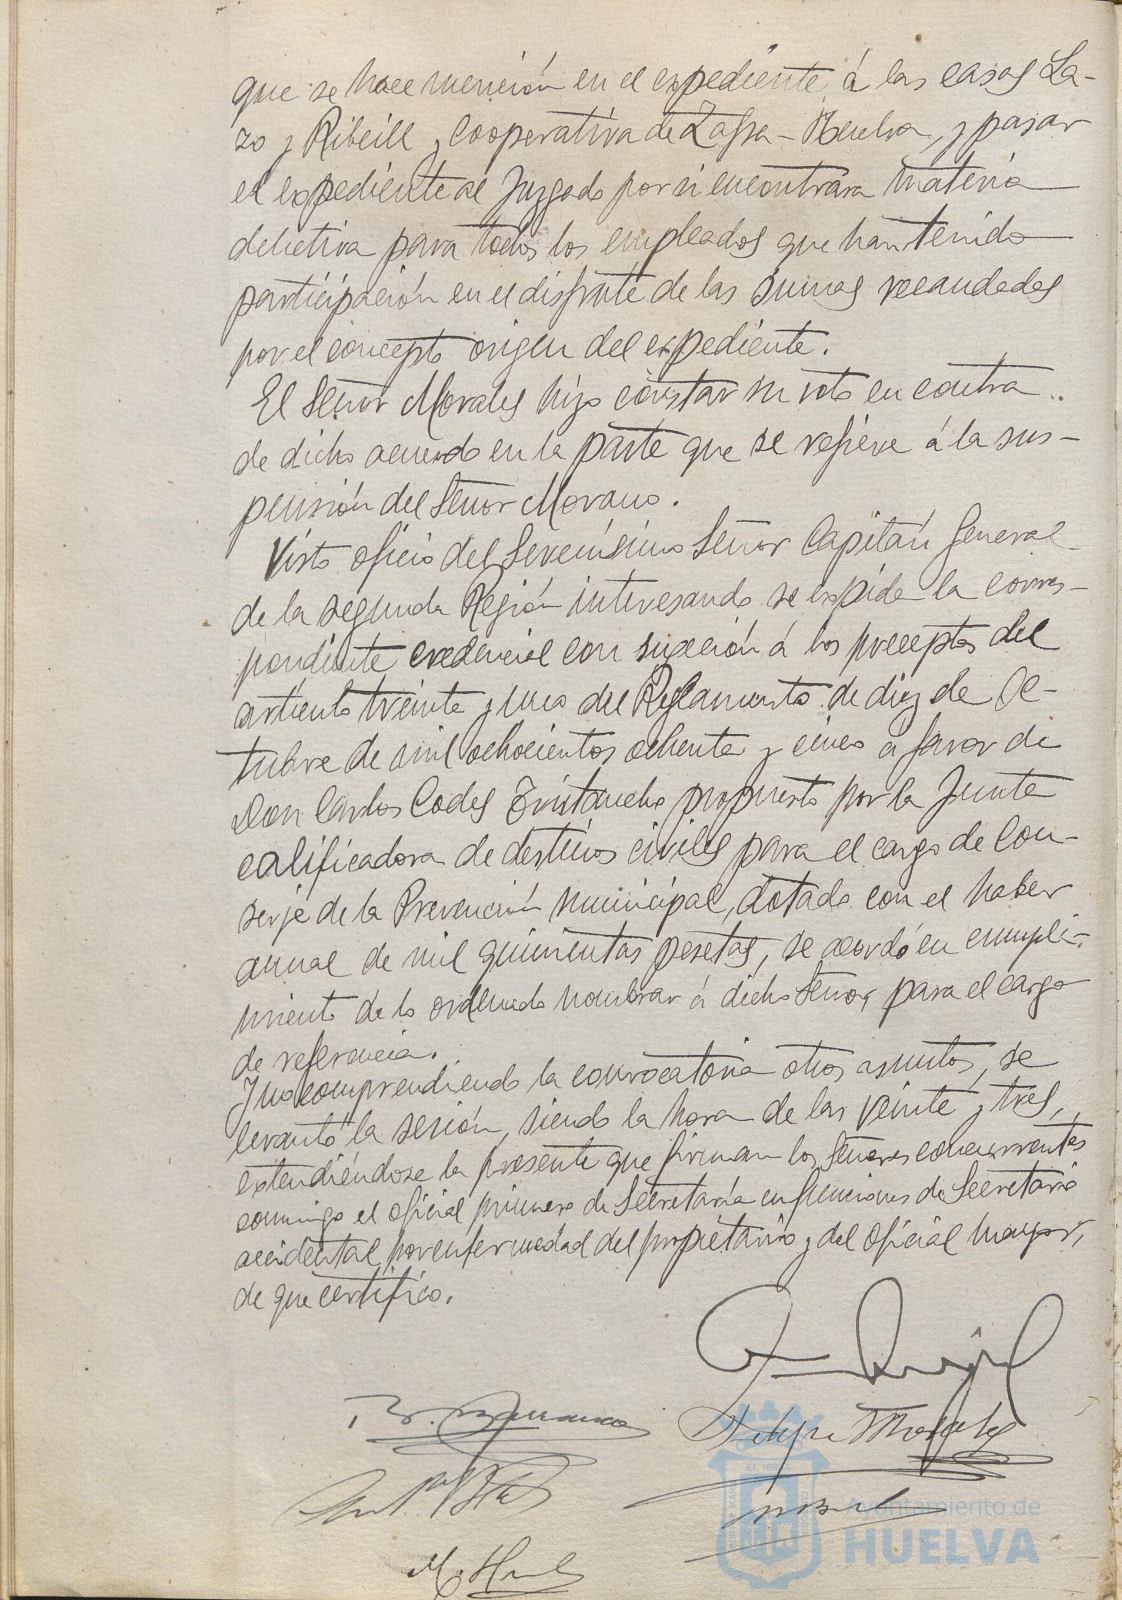 que se hace mención en el expediente, á las casas La-
zo y Ribeill y Cooperativa de Zafra-Huelva, y pasar
el expediente al Juzgado por si encontrara materia
delictiva para todos los empleados que han tenido
participación en el disfrute de las sumas recaudadas
por el concepto origen del expediente.
El Señor Morales hizo constar su voto en contra
de dicho acuerdo en la parte que se refiere á la sus-
pensión del Señor Morano.
Visto oficio del Serenísimo Señor Capitán General
de la segunda Región interesando se expida la corres-
pondiente credencial con sujeción á los preceptos del
artículo treinta y uno del Reglamento de diez de Oc-
tubre de mil ochocientos ochenta y cinco a favor de
Don Carlos Codes propuesto por la Junta
calificadora de destinos civiles para el cargo de Con-
serje de la Prevención municipal, dotado con el haber
anual de mil quinientas pesetas, se acordó en cumpli-
miento de lo ordenado nombrar á dicho Señor, para el cargo
de referencia.
Y no comprendiendo la convocatoria otros asuntos, se
levantó la sesión, siendo la hora de las veinte y tres,
extendiéndose la presente que firman los Señores concurrentes
conmigo el oficial primero de Secretaría en funciones de Secretario
accidental por enfermedad del propietario y del oficial mayor,
de que certifico.
Felipe Morales
Ayuntamiento de
HUELVA